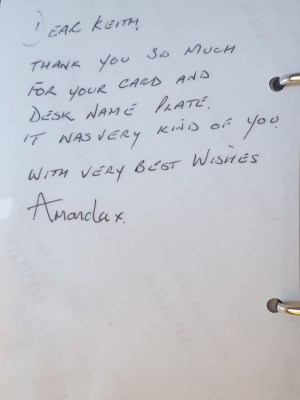 DEAR KEITH,
THANK YOU SO MUCH
FOR YOUR CARD AND
DESK NAME PLATE.
IT WAS VERY KIND OF YOU.
WITH VERY BEST WISHES
Amanda x.